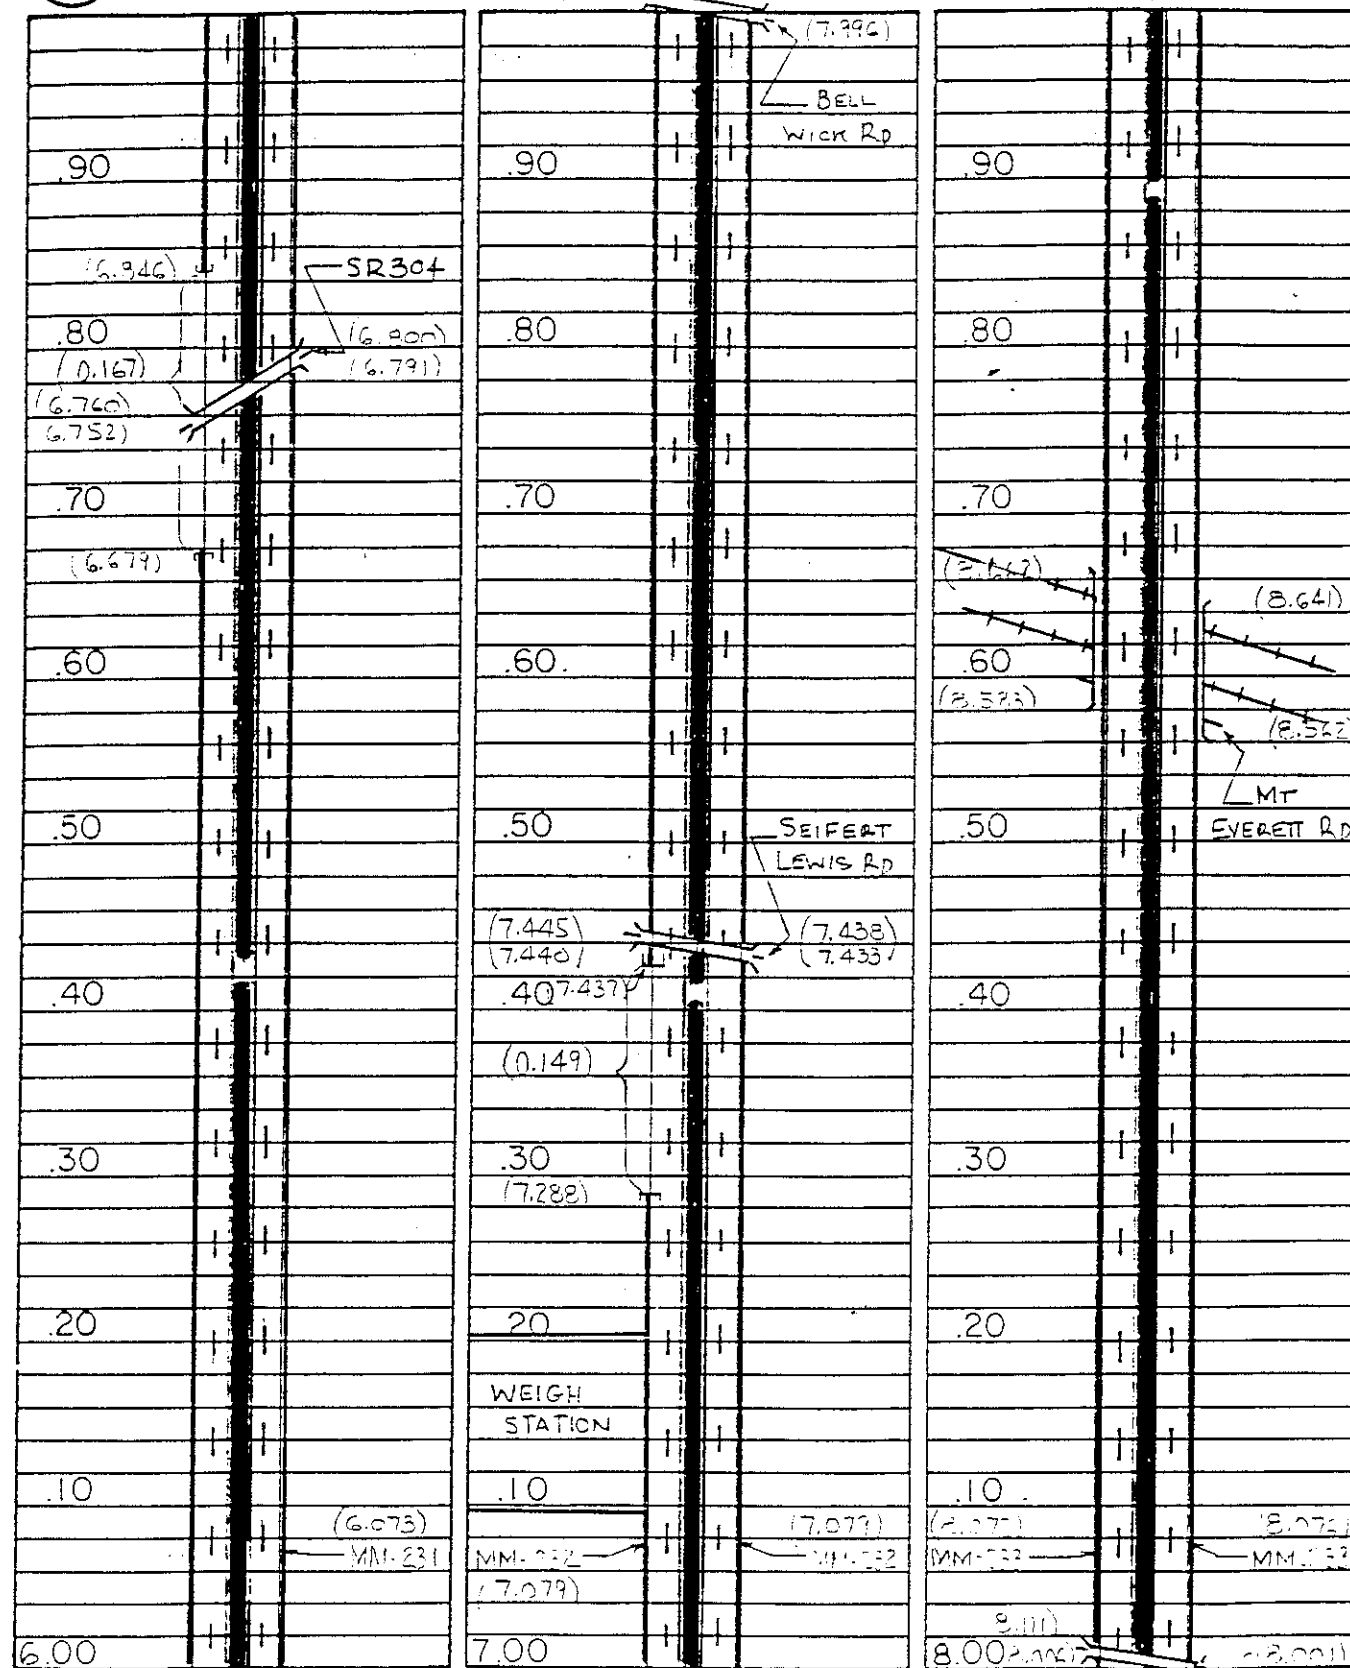 .90
(6.846)
SR304
.80
(6.800)
(0.167)
(6.791)
(6.760)
6.752)
.70
(6.679)
.60
.50
.40
.30
.20
.10
(6.073)
MM-231
6.00
(7.996)
BELL
WICK RD
.90
.80
.70
.60.
.50
SEIFERT
LEWIS RD
(7.445)
(7.438)
(7.440)
(7.433)
.40
(7.437)
(0.149)
.30
(7.288)
.20
WEIGH
STATION
.10
(7.079)
MM-232
MM-232
(7.079)
7.00
.90
.80
.70
(8.641)
.60
(8.583)
(8.562)
MT
EVERETT RD
.50
.40
.30
.20
.10
8.00
(8.001)